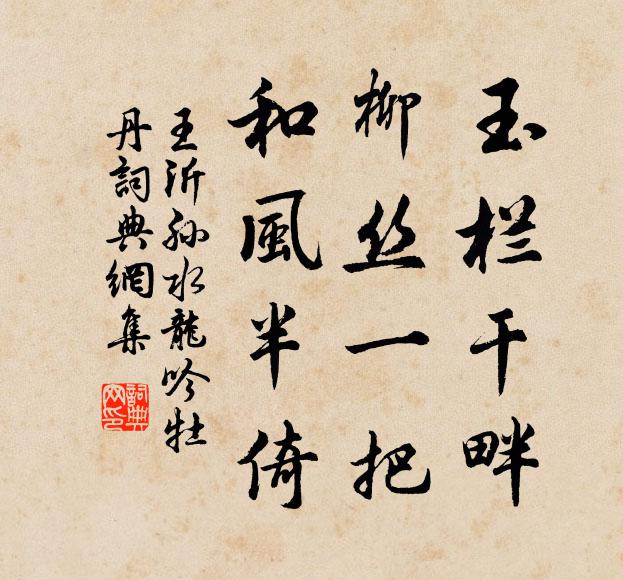 玉栏干畔
柳丝一把
和風半倚
王沂孙水龍吟牡
丹詞典網集
詞典
网印